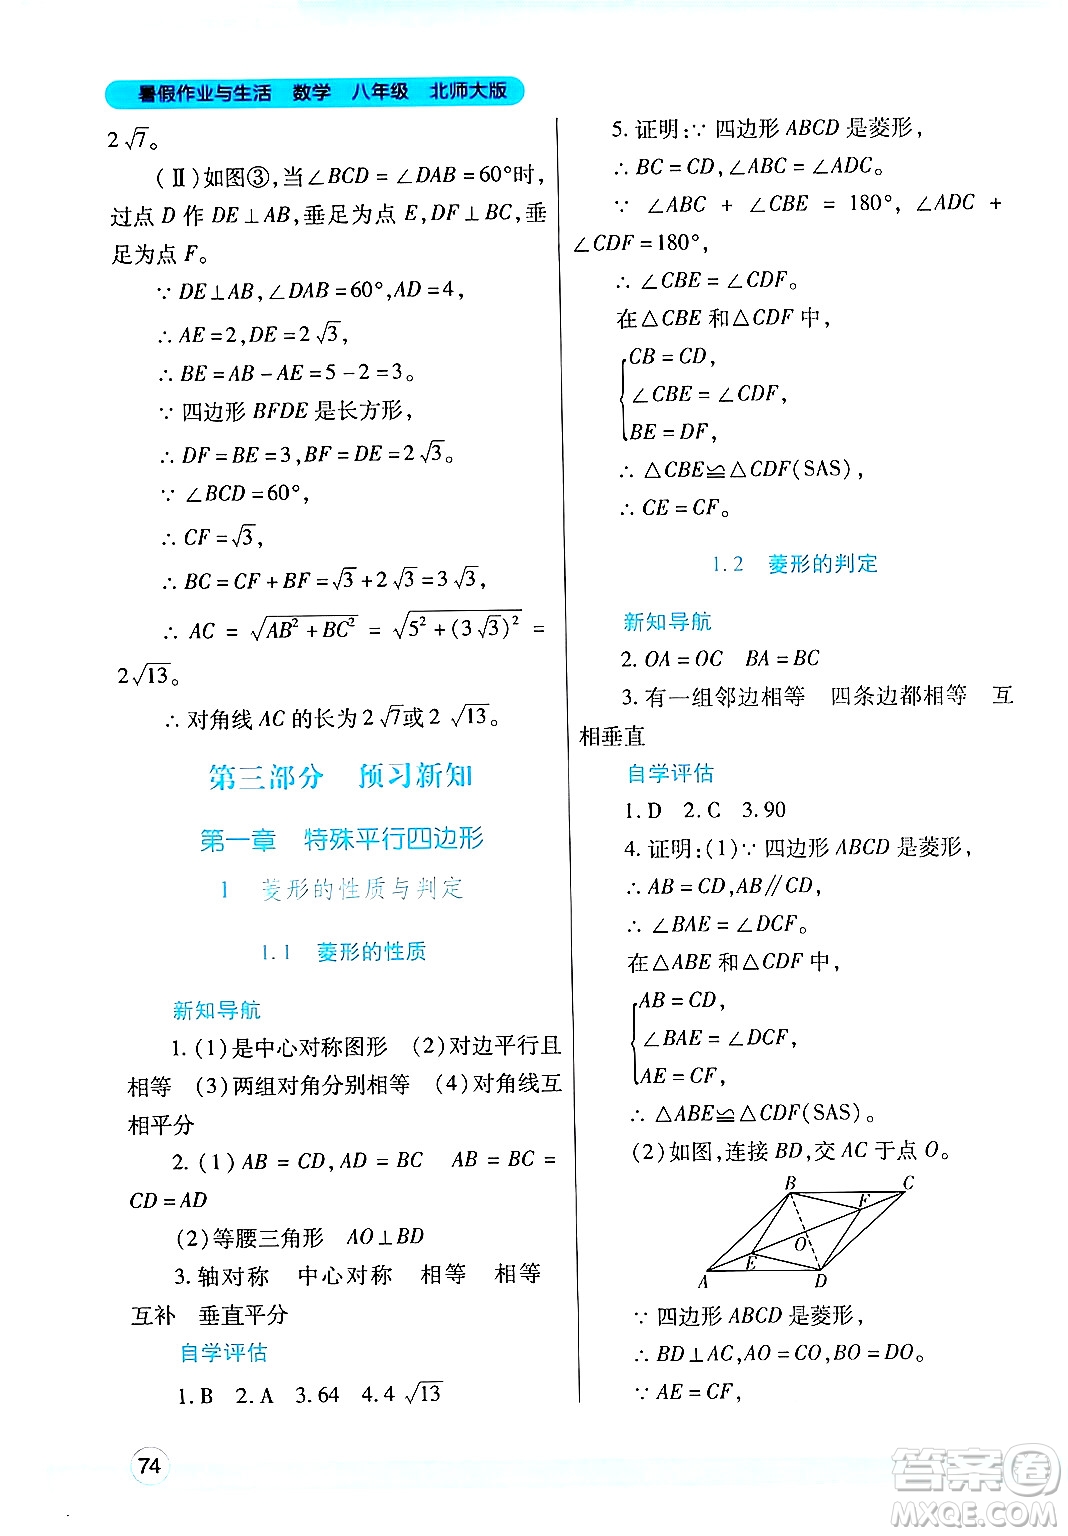 暑假作业与生活 数学 八年级 北师大版
2√7。
(Ⅱ)如图③,当∠BCD=∠DAB=60°时,
过点 D 作 DE⊥AB,垂足为点 E,DF⊥BC,垂
足为点 F。
∵ DE⊥AB,∠DAB=60°,AD=4,
∴ AE=2,DE=2√3,
∴ BE=AB-AE=5-2=3。
∵ 四边形 BFDE 是长方形,
∴ DF=BE=3,BF=DE=2√3。
∵ ∠BCD=60°,
∴ CF=√3,
∴ BC=CF+BF=√3+2√3=3√3,
∴ AC = √(AB²+BC²) = √(5²+(3√3)²) =
2√13。
∴ 对角线 AC 的长为 2√7或 2√13。
第三部分 预习新知
第一章 特殊平行四边形
1 菱形的性质与判定
1.1 菱形的性质
新知导航
1.(1)是中心对称图形 (2)对边平行且
相等 (3)两组对角分别相等 (4)对角线互
相平分
2.(1)AB=CD,AD=BC AB=BC=
CD=AD
(2)等腰三角形 AO⊥BD
3.轴对称 中心对称 相等 相等
互补 垂直平分
自学评估
1.B 2.A 3.64 4.4√13
74
5.证明:∵ 四边形 ABCD 是菱形,
∴ BC=CD,∠ABC=∠ADC。
∵ ∠ABC + ∠CBE = 180°,∠ADC +
∠CDF=180°,
∴ ∠CBE=∠CDF。
在△CBE 和△CDF 中,
CB=CD,
∠CBE=∠CDF,
BE=DF,
∴ △CBE≌△CDF(SAS),
∴ CE=CF。
1.2 菱形的判定
新知导航
2.OA=OC BA=BC
3.有一组邻边相等 四条边都相等 互
相垂直
自学评估
1.D 2.C 3.90
4.证明:(1)∵ 四边形 ABCD 是菱形,
∴ AB=CD,AB∥CD,
∴ ∠BAE=∠DCF。
在△ABE 和△CDF 中,
AB=CD,
∠BAE=∠DCF,
AE=CF,
∴ △ABE≌△CDF(SAS)。
(2)如图,连接 BD,交 AC 于点 O。
B C
F
O
E
A D
∵ 四边形 ABCD 是菱形,
∴ BD⊥AC,AO=CO,BO=DO。
∵ AE=CF,
答案圈
MXQE.COM